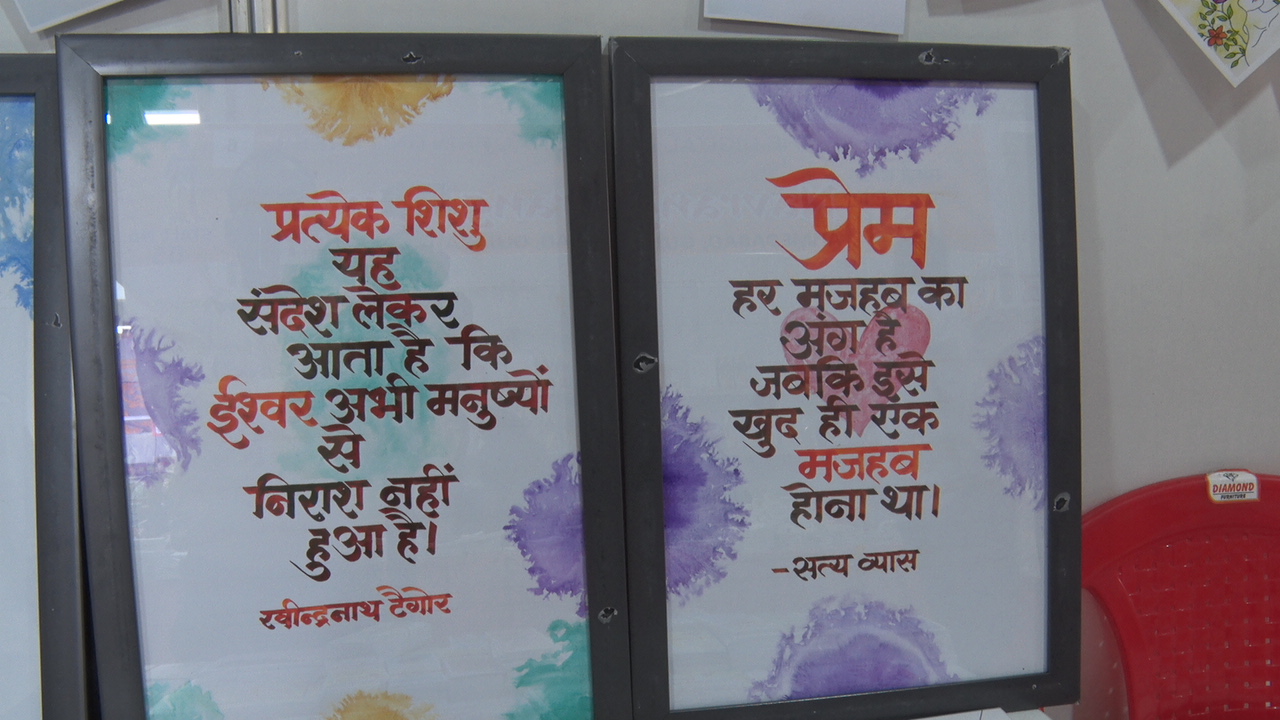 प्रत्येक शिशु
यह
संदेश लेकर
आता है कि
ईश्वर अभी मनुष्यों
से
निराश नहीं
हुआ है।
रवीन्द्रनाथ टैगोर
प्रेम
हर मजहब का
अंग है
जबकि इसे
खुद ही एक
मजहब
होना था।
-सत्य व्यास
DIAMOND
FURNITURE